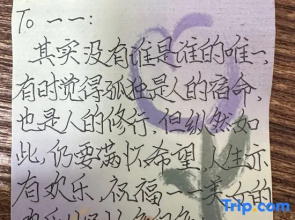 To 一一:
其实没有谁是谁的唯一,
有时觉得孤独是人的宿命,
也是人的修行。但纵然如
此,仍要满怀希望,人生亦
有欢乐,祝福一一美好的
Trip.com